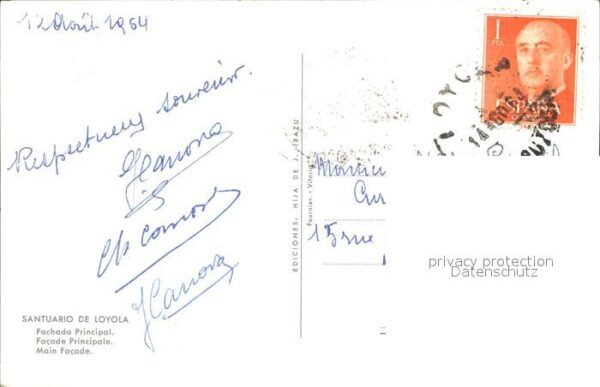 12 Août 1964
Respectueux souvenir.
J Canova
J Canova
SANTUARIO DE LOYOLA
Fachada Principal.
Façade Principale.
Main Façade.
EDICIONES: HIJA DE J.
Fournier. - Vitoria
1
PTA
ESPAÑA
LOYOLA
Monsieur
15 rue
privacy protection
Datenschutz